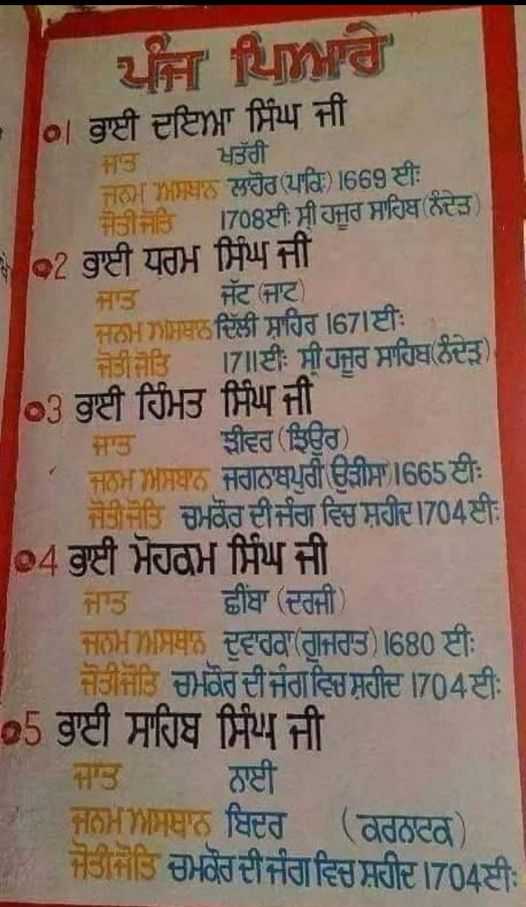 ਪੰਜ ਪਿਆਰੇ
01 ਭਾਈ ਦਇਆ ਸਿੰਘ ਜੀ
ਜਾਤ ਖਤੱਰੀ
ਜਨਮ ਅਸਥਾਨ ਲਾਹੋਰ (ਪਾਕਿ:) 1669 ਈ:
ਜੋਤੀ ਜੋਤਿ 1708ਈ: ਸ਼੍ਰੀ ਹਜੂਰ ਸਾਹਿਬ (ਨੰਦੇੜ)
02 ਭਾਈ ਧਰਮ ਸਿੰਘ ਜੀ
ਜਾਤ ਜੱਟ (ਜਾਟ)
ਜਨਮ ਅਸਥਾਨ ਦਿੱਲੀ ਸ਼ਹਿਰ 1671ਈ:
ਜੋਤੀ ਜੋਤਿ 1711ਈ: ਸ਼੍ਰੀ ਹਜੂਰ ਸਾਹਿਬ (ਨੰਦੇੜ)
03 ਭਾਈ ਹਿੰਮਤ ਸਿੰਘ ਜੀ
ਜਾਤ ਝੀਵਰ (ਝਿਊਰ)
ਜਨਮ ਅਸਥਾਨ ਜਗਨਾਥਪੁਰੀ (ਉੜੀਸਾ) 1665 ਈ:
ਜੋਤੀ ਜੋਤਿ ਚਮਕੌਰ ਦੀ ਜੰਗ ਵਿਚ ਸ਼ਹੀਦ 1704ਈ:
04 ਭਾਈ ਮੋਹਕਮ ਸਿੰਘ ਜੀ
ਜਾਤ ਛੀਂਬਾ (ਦਰਜੀ)
ਜਨਮ ਅਸਥਾਨ ਦੁਵਾਰਕਾ (ਗੁਜਰਾਤ) 1680 ਈ:
ਜੋਤੀ ਜੋਤਿ ਚਮਕੌਰ ਦੀ ਜੰਗ ਵਿਚ ਸ਼ਹੀਦ 1704ਈ:
05 ਭਾਈ ਸਾਹਿਬ ਸਿੰਘ ਜੀ
ਜਾਤ ਨਾਈ
ਜਨਮ ਅਸਥਾਨ ਬਿਦਰ (ਕਰਨਾਟਕ)
ਜੋਤੀ ਜੋਤਿ ਚਮਕੌਰ ਦੀ ਜੰਗ ਵਿਚ ਸ਼ਹੀਦ 1704ਈ: